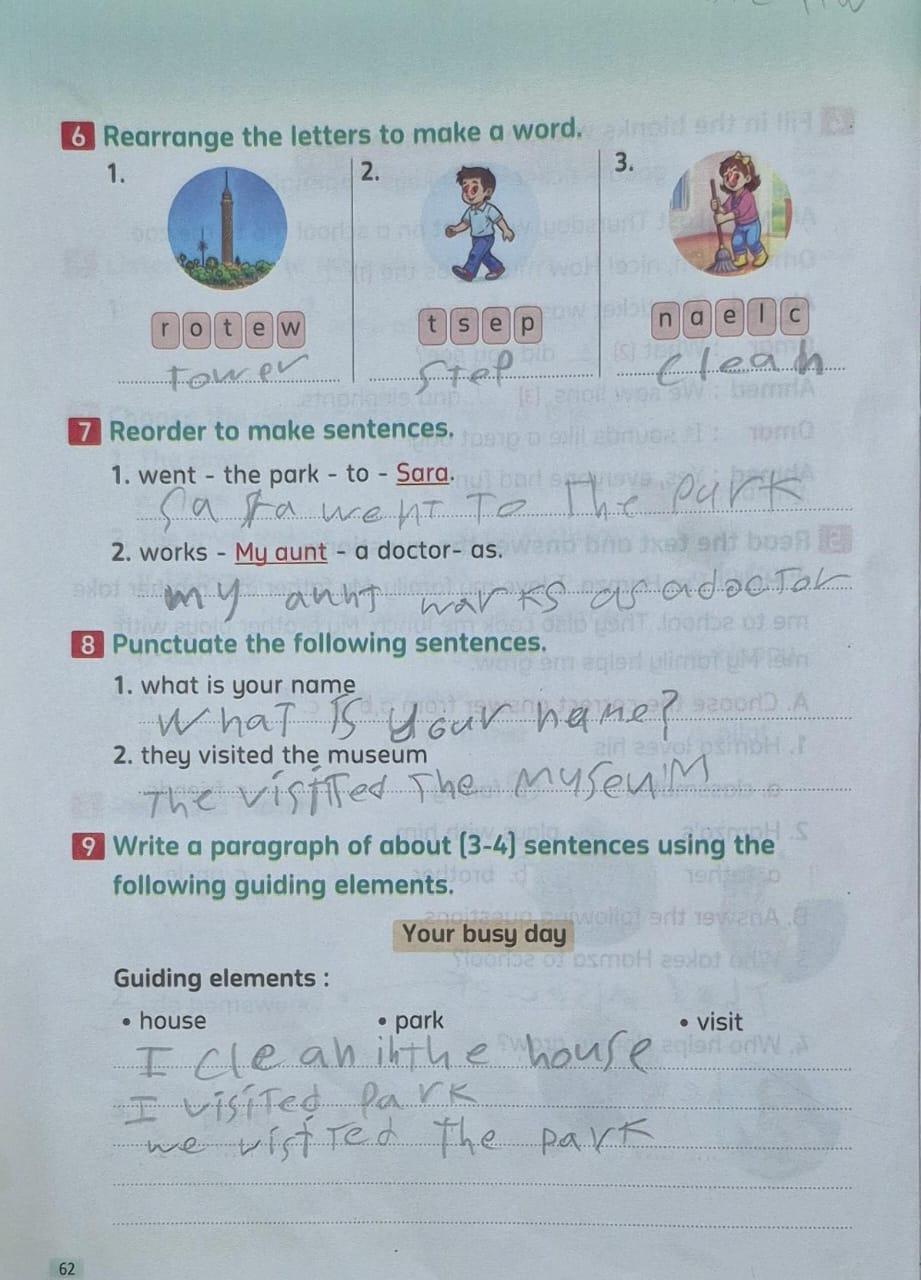 6 Rearrange the letters to make a word.
1. 2. 3.
r o t e w t s e p n a e l c
Tower Step Clean
7 Reorder to make sentences.
1. went - the park - to - Sara.
Sara went To The park
2. works - My aunt - a doctor- as.
my aunt warks as adocTor
8 Punctuate the following sentences.
1. what is your name
What Is your name?
2. they visited the museum
The visiTed The MuseuM
9 Write a paragraph of about (3-4) sentences using the
following guiding elements.
Your busy day
Guiding elements :
• house • park • visit
I clean inthe house
I visiTed Park
we visiTed The park
62